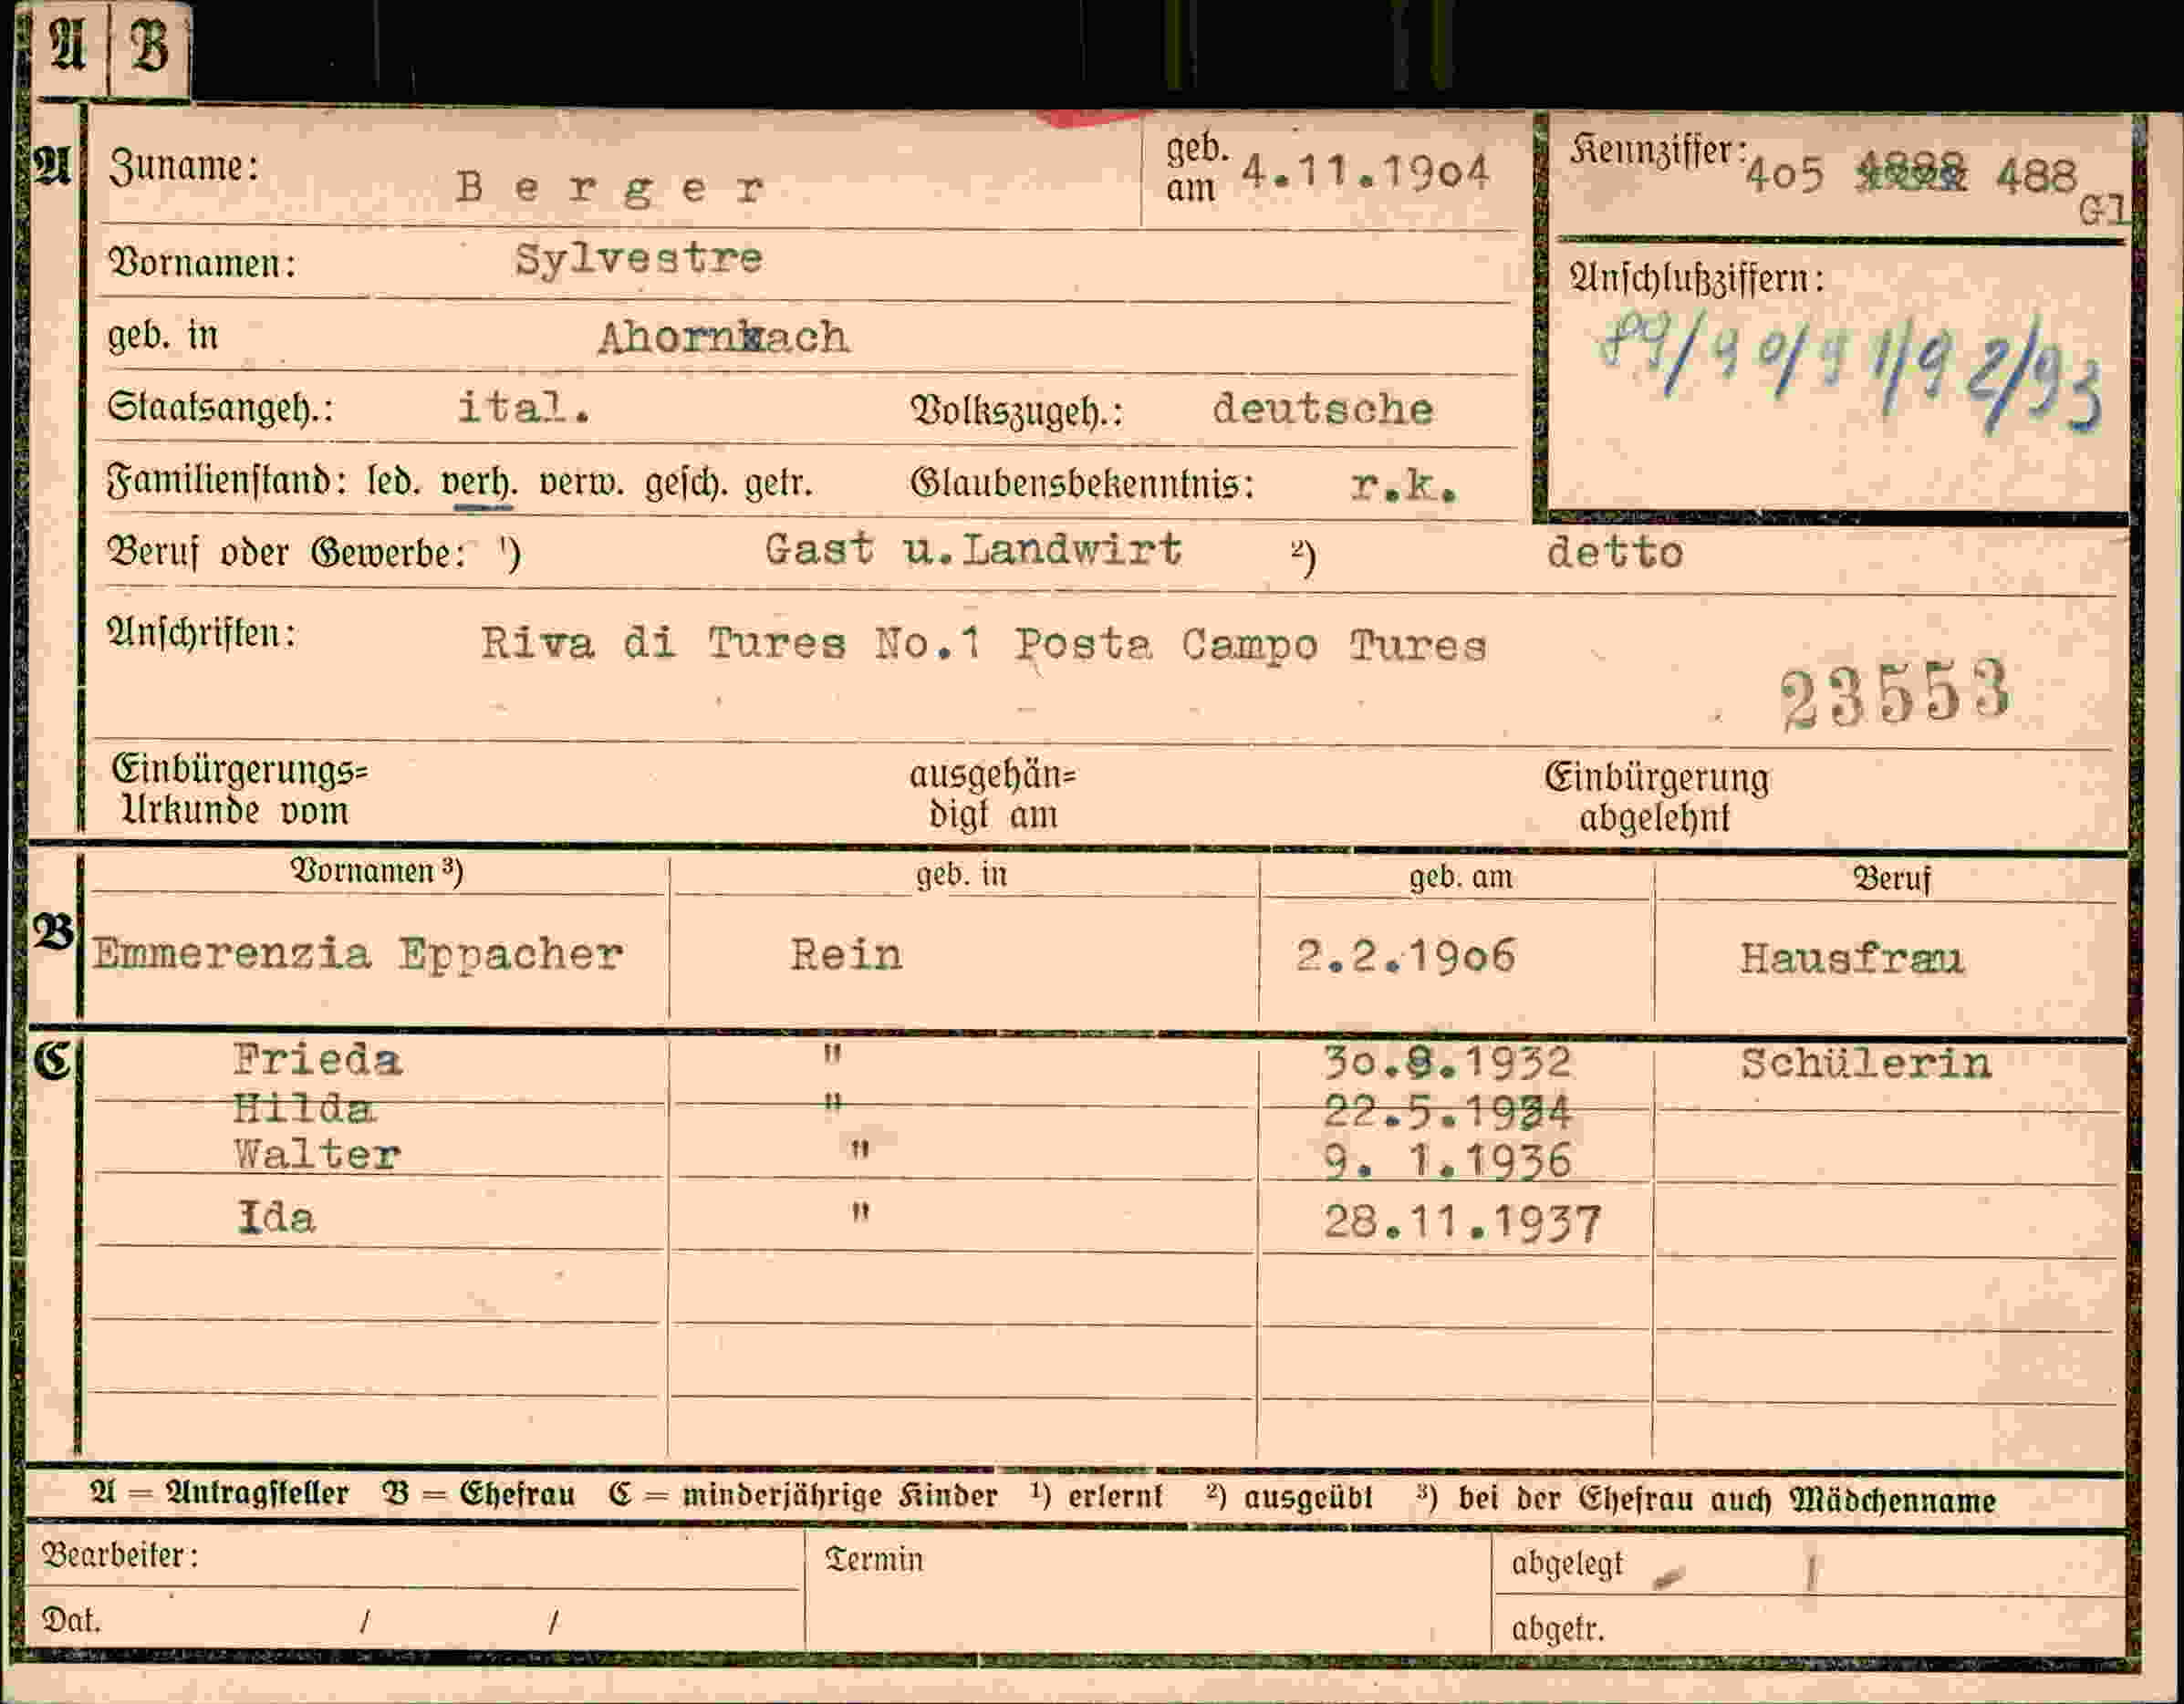 A B
A Zuname: Berger geb. am 4.11.1904 Kennziffer: 405 488 Gl
Vornamen: Sylvestre Anschlußziffern:
geb. in Ahornach 89/90/91/92/93
Staatsangeh.: ital. Volkszugeh.: deutsche
Familienstand: led. verh. verw. gesch. getr. Glaubensbekenntnis: r.k.
Beruf oder Gewerbe: ¹) Gast u.Landwirt ²) detto
Anschriften: Riva di Tures No.1 Posta Campo Tures
23553
Einbürgerungs= ausgehän= Einbürgerung
Urkunde vom digt am abgelehnt
Vornamen ³) geb. in geb. am Beruf
B Emmerenzia Eppacher Rein 2.2.1906 Hausfrau
C Frieda " 30.8.1932 Schülerin
Hilda " 22.5.1934
Walter " 9. 1.1936
Ida " 28.11.1937
A = Antragsteller B = Ehefrau C = minderjährige Kinder ¹) erlernt ²) ausgeübt ³) bei der Ehefrau auch Mädchenname
Bearbeiter: Termin abgelegt
Dat. / / abgetr.